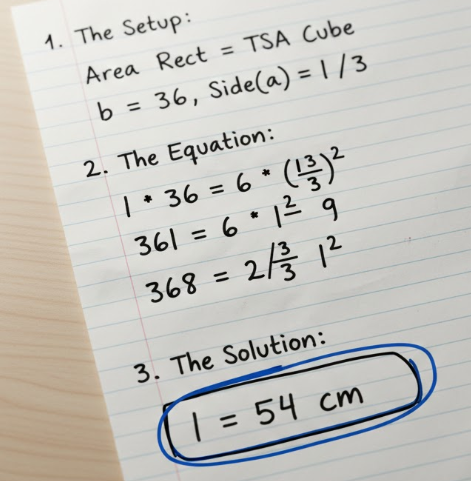 1. The Setup:
Area Rect = TSA Cube
b = 36, Side(a) = 1/3
2. The Equation:
1 * 36 = 6 * (13/3)²
361 = 6 * 1² 9
368 = 2/3/3 1²
3. The Solution:
1 = 54 cm